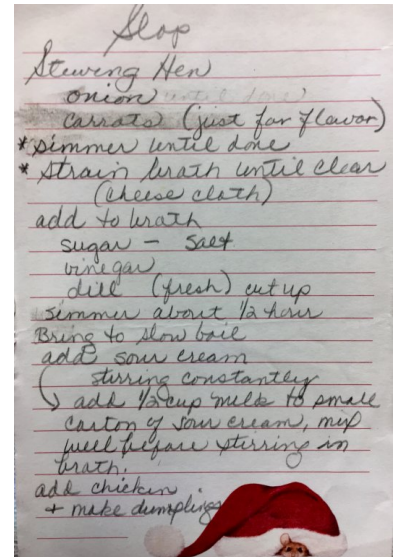 Slop
Stewing Hen
onion until done)
carrats (just for flavor)
* simmer until done
* strain brath until clear
(cheese clath)
add to brath
sugar - salt
vinegar
dill (fresh) cut up
simmer about 1/2 hour
Bring to slow boil
add sour cream
stirring constantly
add 1/2 cup milk to small
carton of sour cream, mix
well before stirring in
brath.
add chicken
+ make dumplings